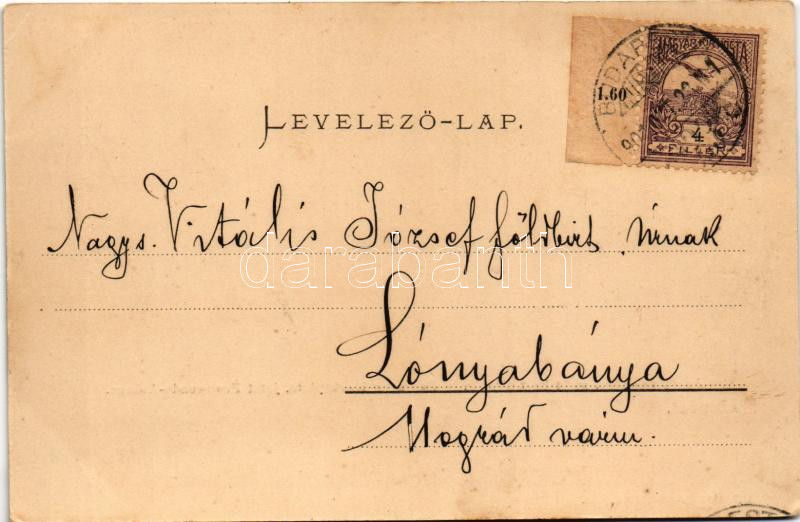 1.60
MAGYAR KIR. POSTA
4
FILLÉR
LEVELEZŐ-LAP.
Nagys. Vitális József földbirt. úrnak
darabanth
Lónyabánya
Nográd várm.
EST